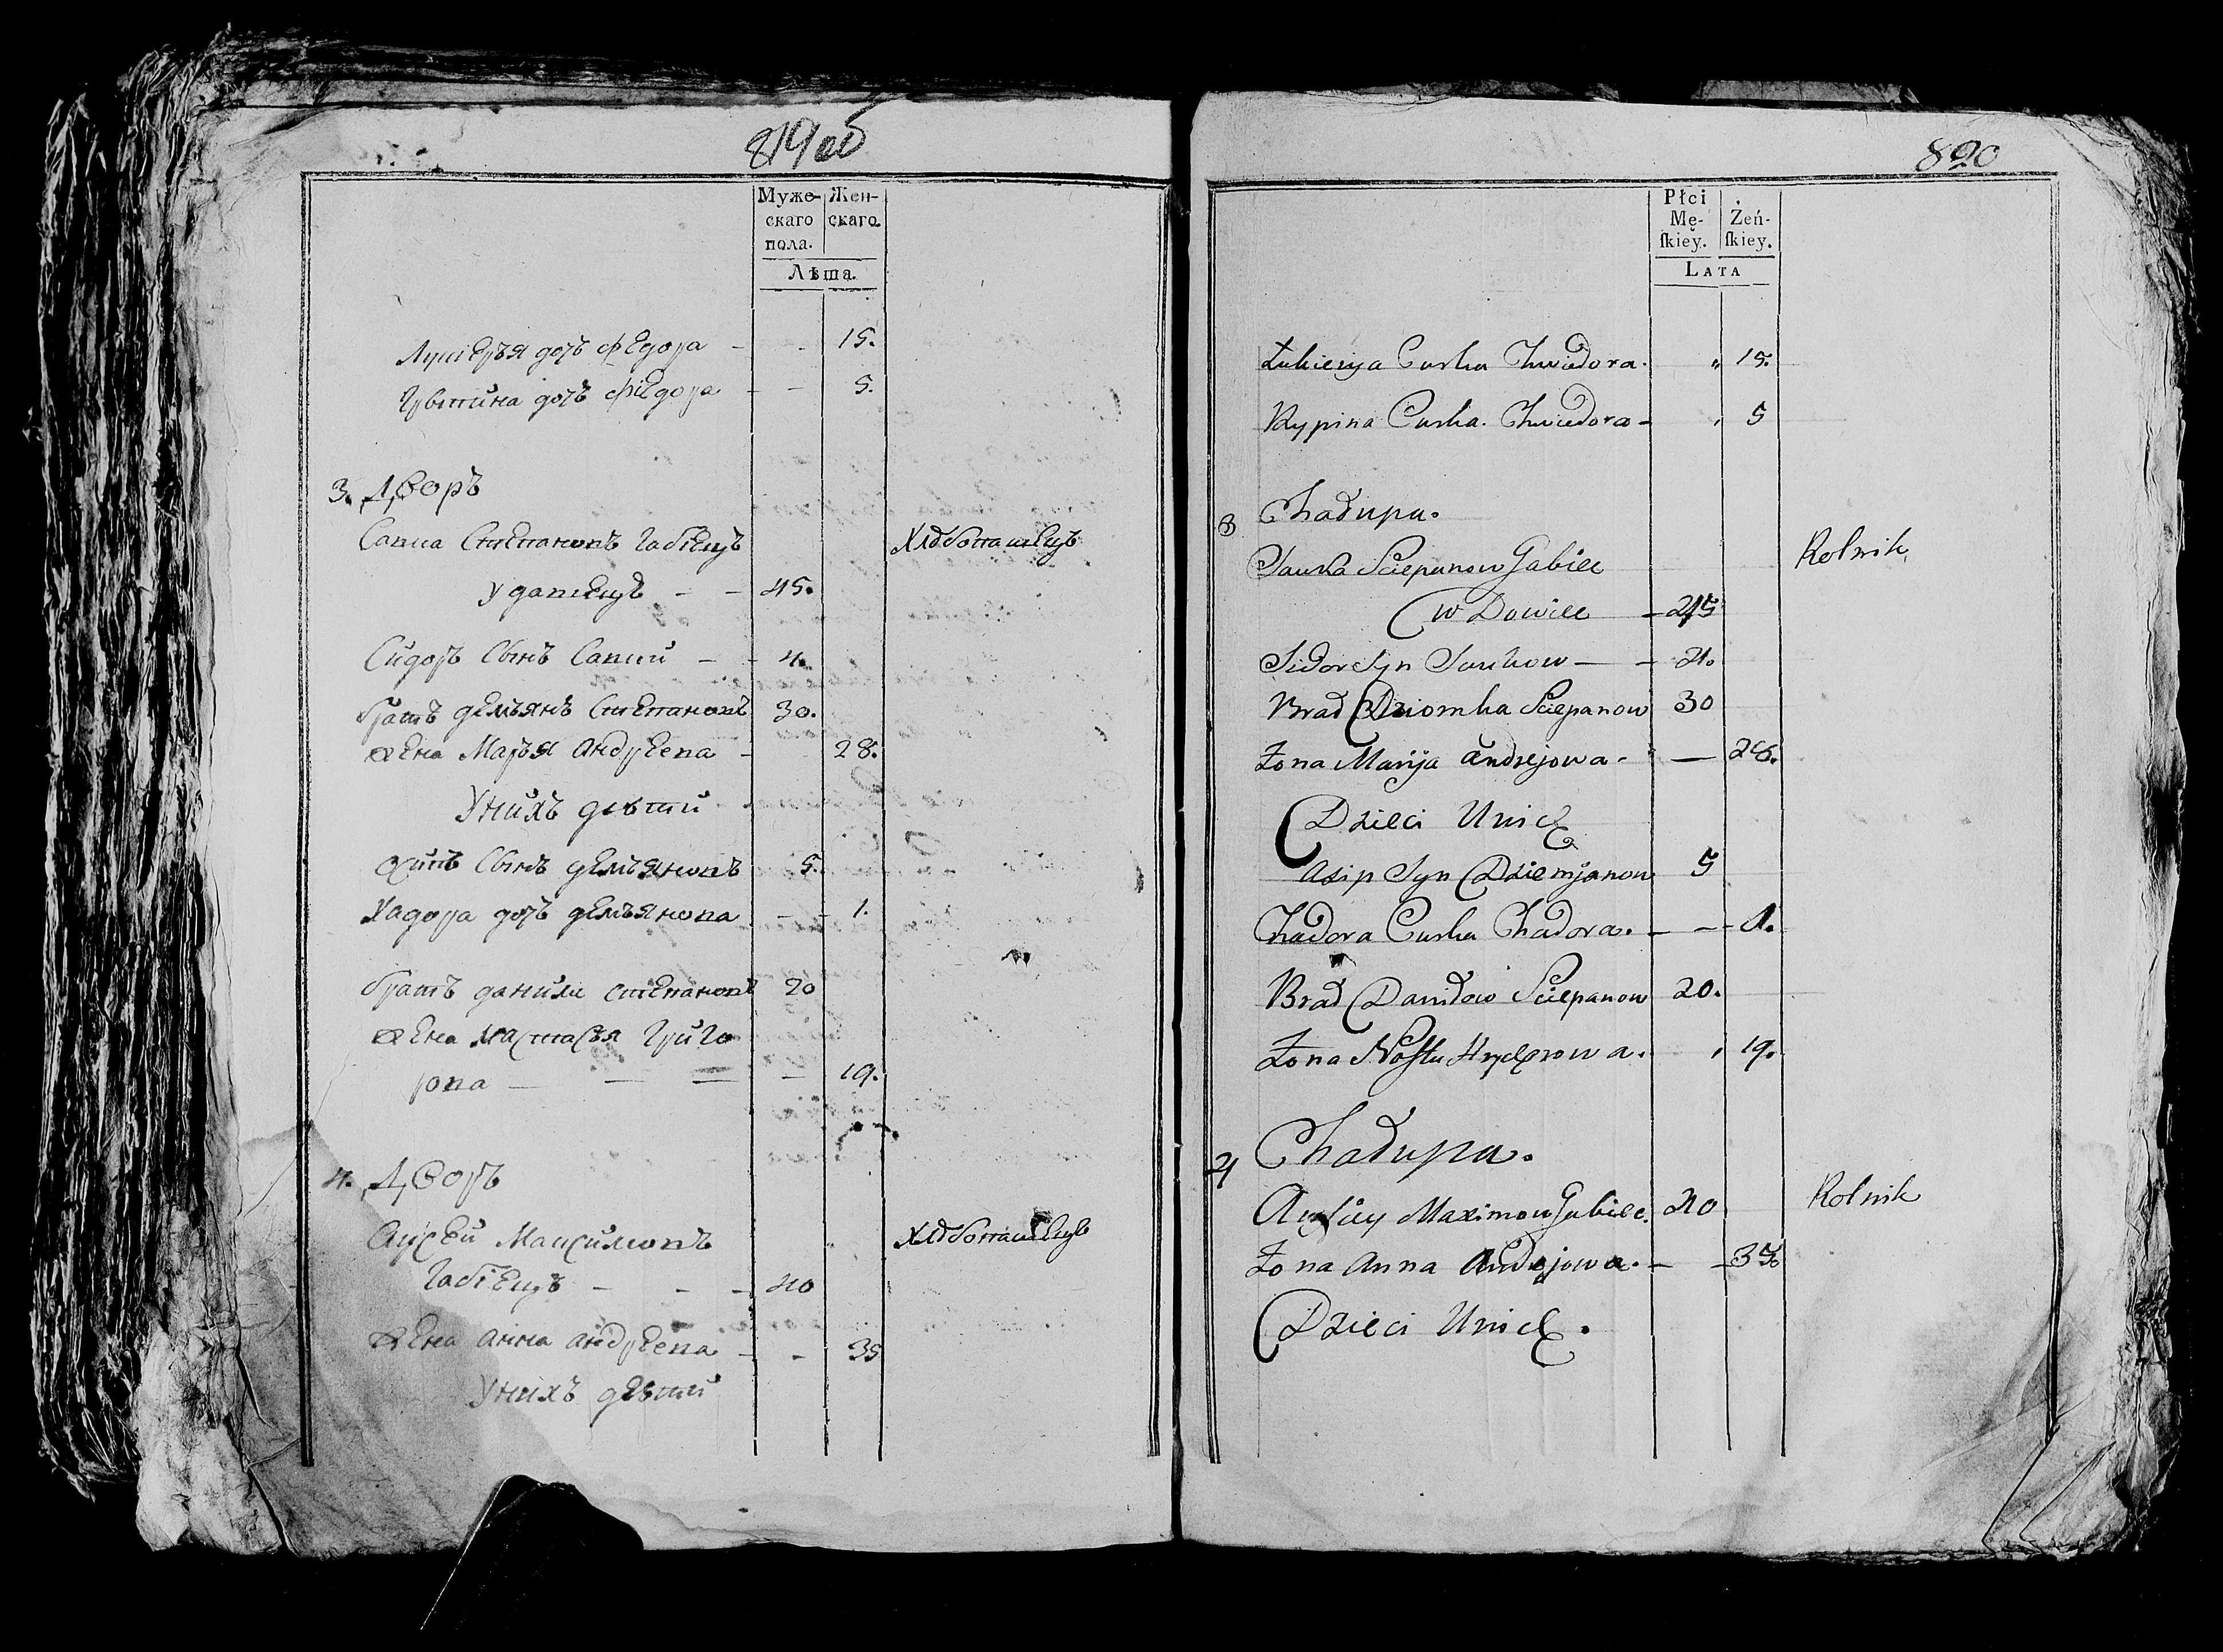 819об
Муже- Жен-
скаго скаго
пола.
Лѣта.
Лукерья дочь Федора - - 15.
дочь Федора - - 5.
3. Дворъ
Савка Степановъ Габіецъ Хлѣбопашецъ
удовецъ - - 45.
Сидоръ Сынъ Савки - - 4.
братъ демьянъ Степановъ 30.
жена Марья андреева - 28.
У нихъ дѣти
Осипъ Сынъ демьяновъ 5.
Хадора дочь демьянова - - 1.
братъ данила степановъ 20
жена настасья Григо
рова - - - - 19.
4. Дворъ
Максимовъ Хлѣбопашецъ
Габіецъ - - - 40
жена анна андреева - - 35
У нихъ дѣти
820
Płci
Mę- Żeń-
ſkiey. ſkiey.
LATA
Łukierya Curka Chwiedora. „ 15.
Curka. Chwiedora - , 5
3 Chałupa.
Sauka Sciepanow Gabiec Rolnik
w Dowiec - 45
Sidor Syn Saukow - - 4.
Brad Dziomka Sciepanow 30
Żona Marija andrejowa - - 28.
Dzieci Unich
asip Syn Dziemjanow 5
Chadora Curka Chadora. - - 1.
Brad Daniło Sciepanow 20.
Żona Nasta Hryhorowa. , 19.
4 Chałupa.
Maximow Gabiec. 40 Rolnik
Żona anna andrejowa. - - 35
Dzieci Unich.